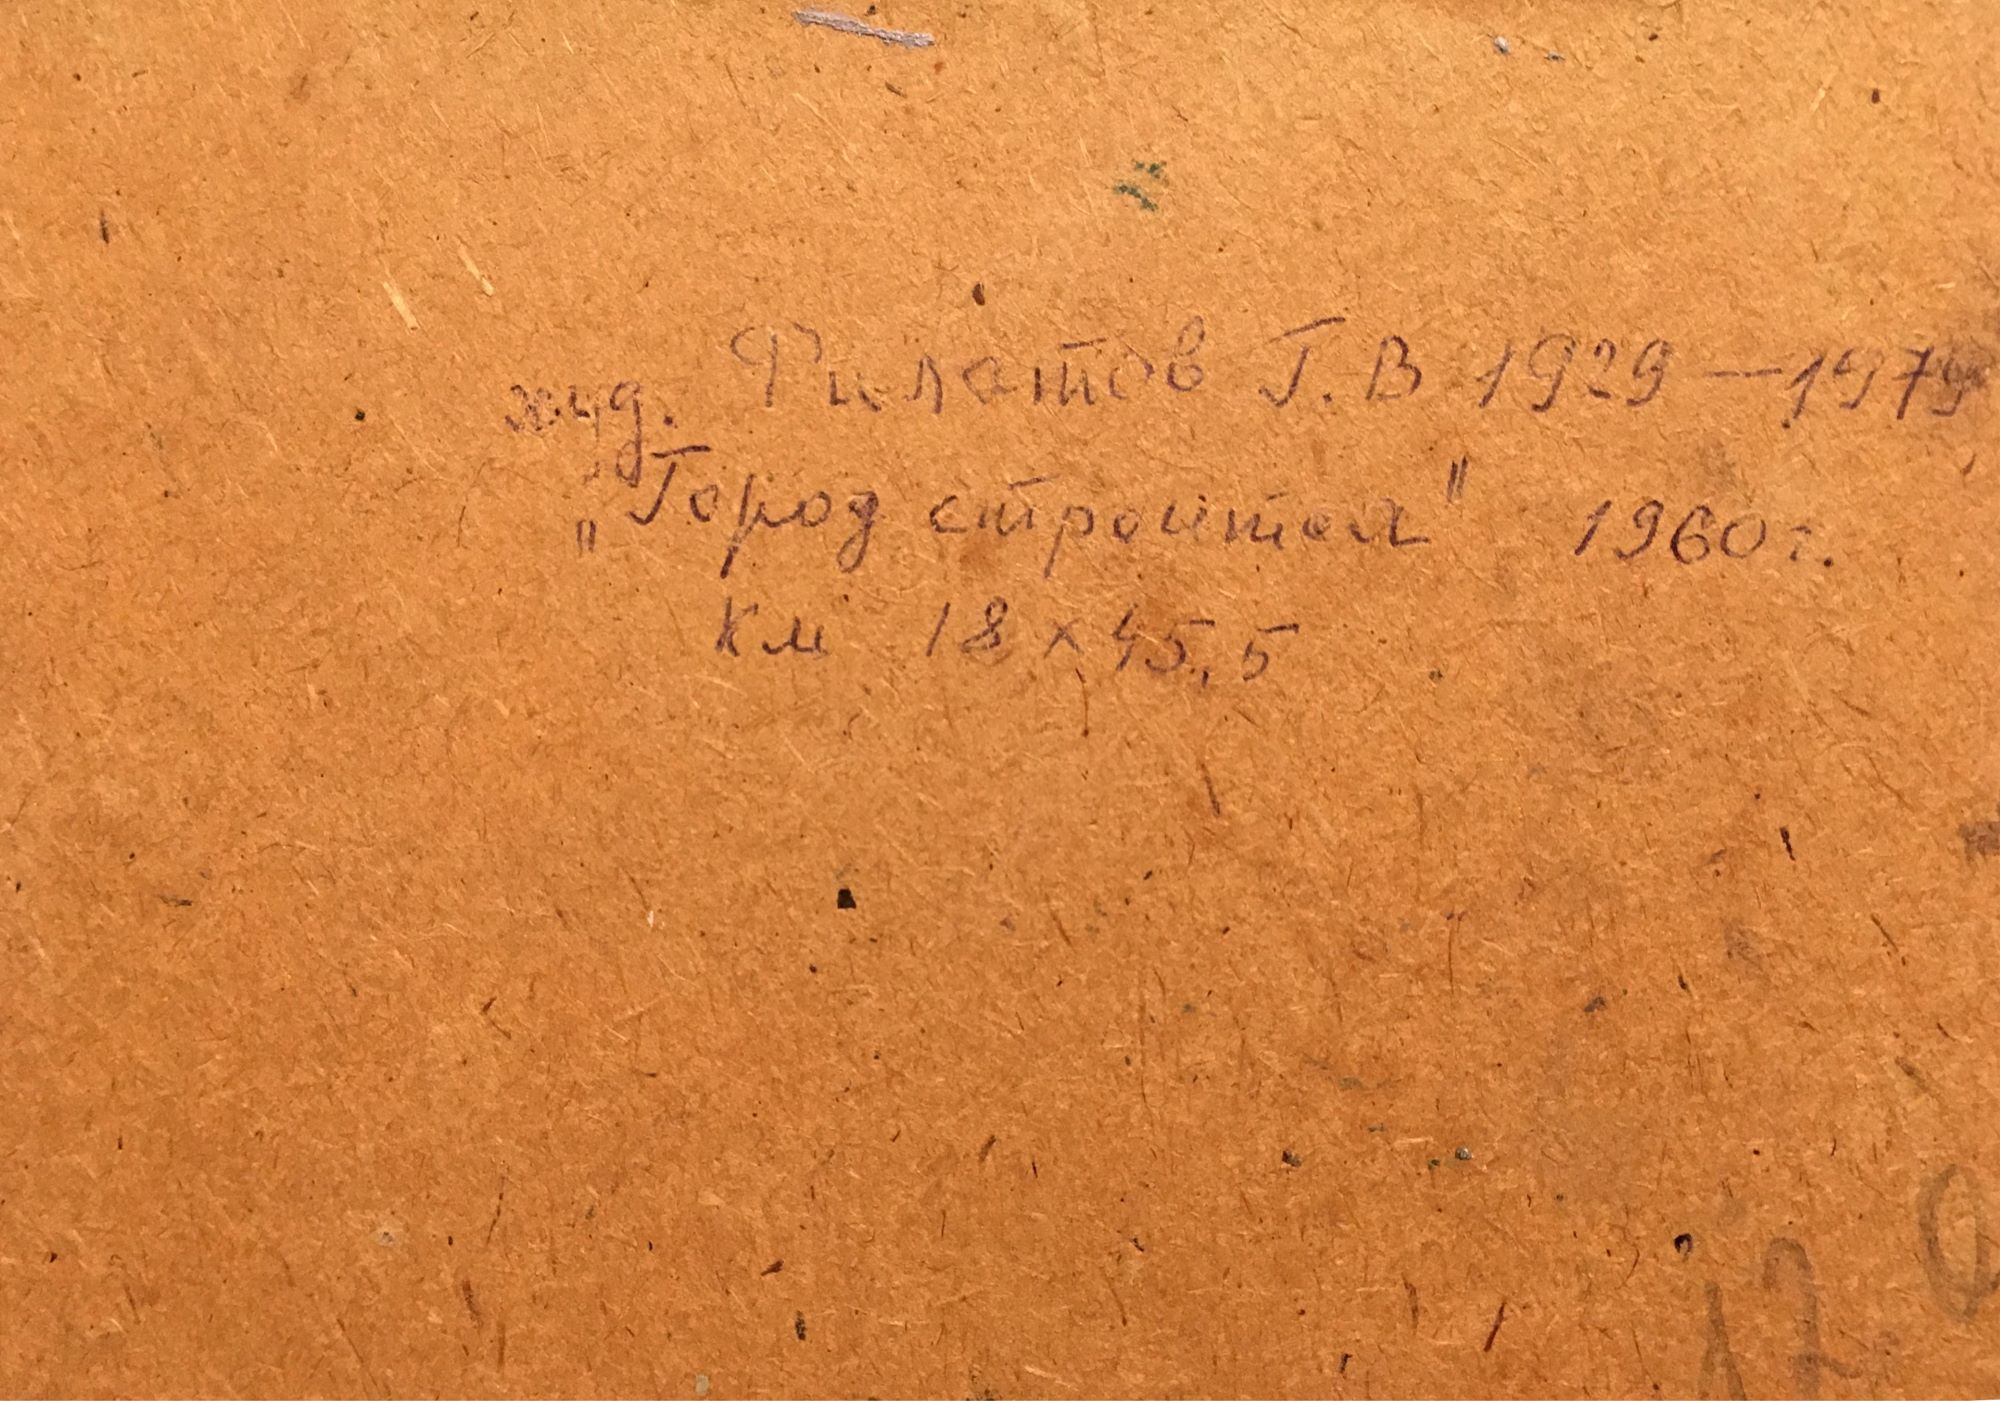 худ. Филатов Г. В 1929 — 1979
„Город строится" 1960 г.
КМ 18 × 45,5